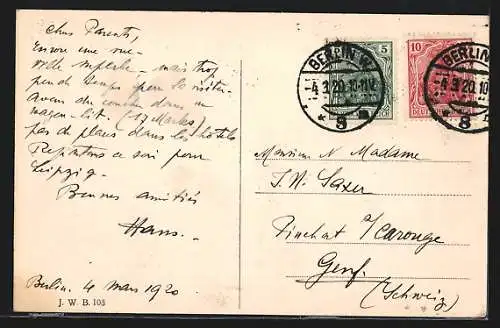 Chers Parents,
Encore une nou-
velle superbe - mais trop
peu de temps pour la visiter
avons du coucher dans un
wagon-lit (17 Marks)
pas de place dans les hôtels
Repartons ce soir pour
Leipzig.
Bonnes amitiés
Hans.
Berlin. 4 Mars 1920
J. W. B. 103
5
BERLIN W
-4.3.20.10-11V.
* 8
10
BERLIN
-4.3.20.10
* 8
Monsieur & Madame
Pinchat s/Carouge
Genf.
(Schweiz)